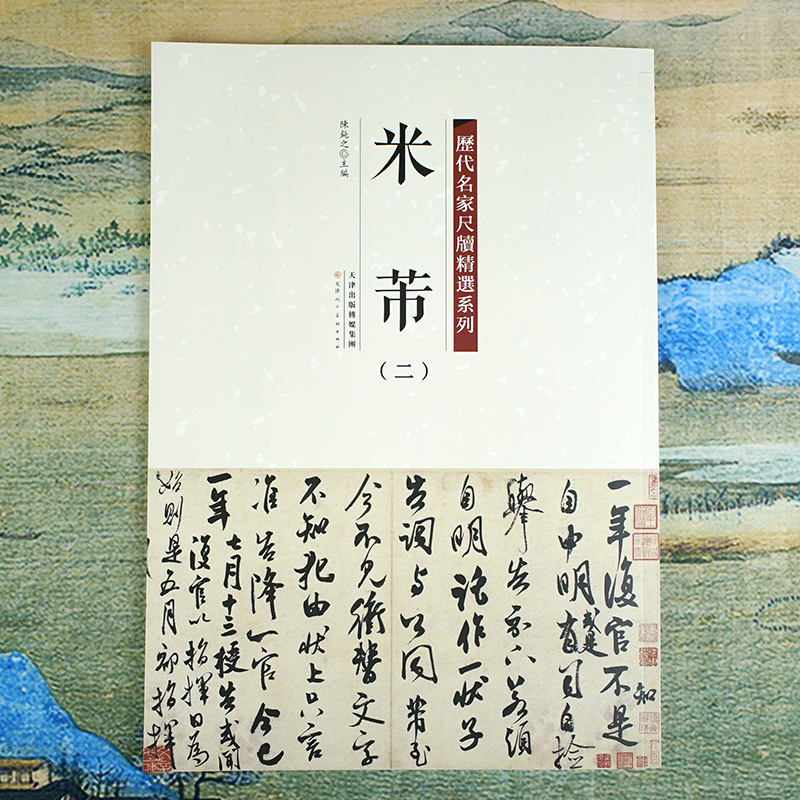 歷代名家尺牘精選系列
米芾
（二）
陳鈍之◎主編
天津出版傳媒集團
天津人民美術出版社
一年復官不是
知
自申明或是有司自檢
舉告示下若須
自明作一狀子
告詞与以同芾至
今不見銜替文字
不知犯由狀上只言
准告降一官今已
一年七月十三授告或聞
復官以指揮日為
始則是五月初指揮